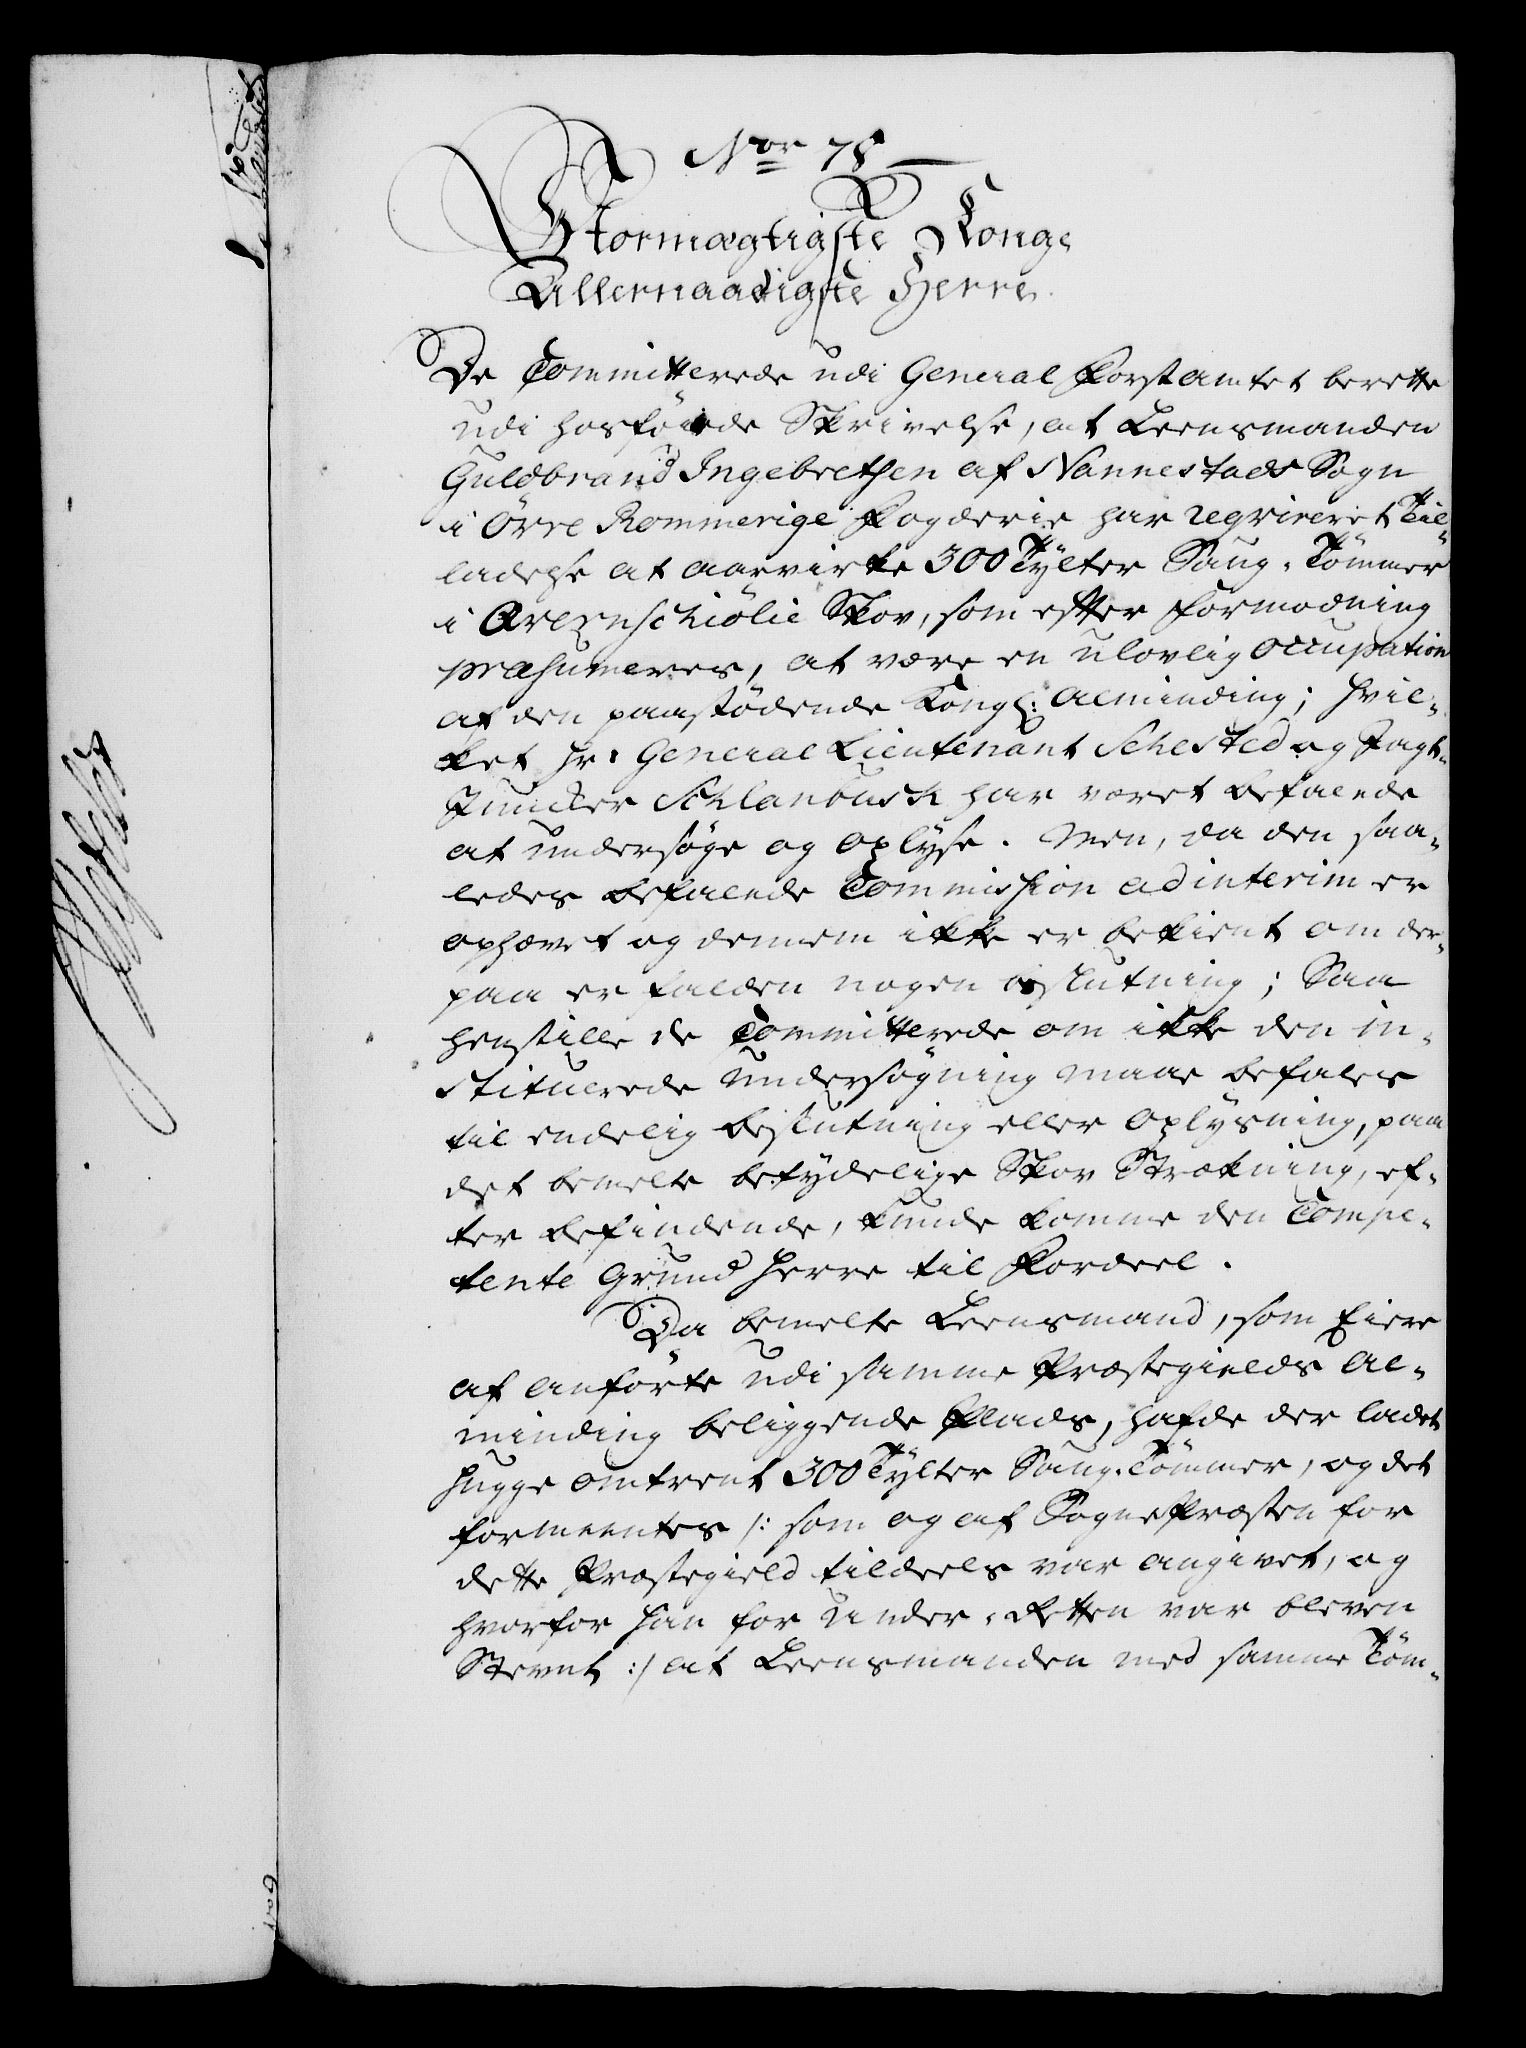 Nor 78
Stormægtigste Konge
Allernaadigste Herre
De Committerede udi General Forstamtet berette
udi hosføiede Skrivelse, at Leensmanden
Guldbrand Ingebrethsen af Nannestads Sogn
i Øvre Rommerige Fogderie har reqvireret Til-
ladelse at aarvirke 300 Tylter Saug-Tømmer
i Skov, som efter Formodning
præsumeres, at være en ulovlig Occupation
af den paastødende Kongl: Alminding; hvil-
ket Hr: General Lieutenant Schested og Jagt-
Juncker Schlanbusch har været befalede
at undersøge og oplyse. Men, da den saa-
ledes befalede Commission ad interim er
ophævet og dennem ikke er bekient om der-
paa er falden nogen Slutning; Saa
henstille de Committerede om ikke den in-
stituerede Undersøgning maae befales
til endelig Beslutning eller Oplysning, paa
det bemelte betydelige Skov Strækning, ef-
ter befindende, kunde komme den Compe-
tente Grund Herre til Fordeel.
Da bemelte Leensmand, som Eiere
af anførte udi samme Præstegields Al-
minding beliggende Plads, hafde der ladet
hugge omtrent 300 Tylter Saug-Tømmer, og det
formeentes /: som og af SognePræsten for
dette Præstegield tildeels var angivet, og
hvorfor han for Under-Retten var bleven
Stevnt :/ at Leensmanden med samme Tøm-